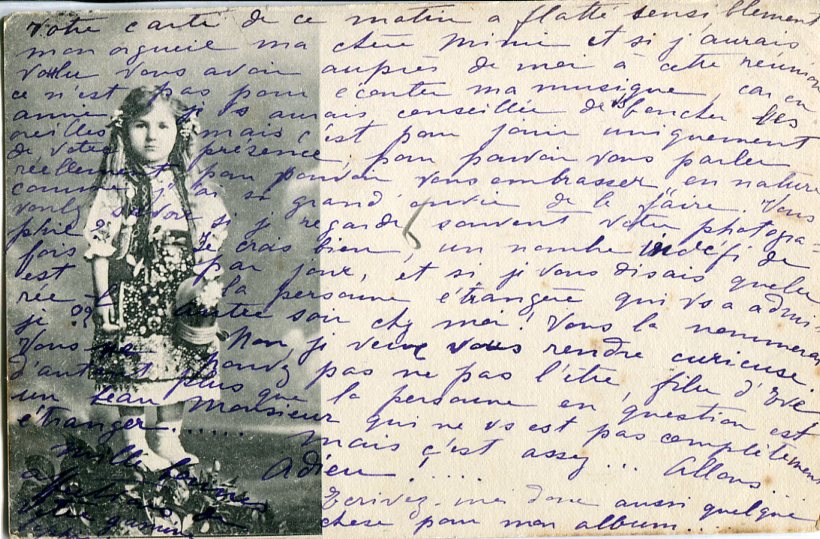 Votre carte de ce matin a flatté sensiblement
mon orgueil ma chère Mimi et si j'aurais
voulu vous avoir auprès de moi à cette réunion
ce n'est pas pour écouter ma musique, car en
ami, je vs aurais conseillée de vs boucher les
oreilles mais c'est pour jouir uniquement
de votre présence, pour pouvoir vous parler
réellement pour pouvoir vous embrasser en nature
comme j'ai si grand envie de le faire. Vous
voulez savoir si je regarde souvent votre photogra-
phie? Je crois bien, un nombre indéfi de
fois par jour, et si je vous disais quelle
est la personne étrangère qui vs a admi-
rée l'autre soir chez moi! Vous la nommerai
je?? Non je veux vous rendre curieuse.
Vous ne pouvez pas ne pas l'être, fille d'Eve
d'autant plus que la personne en question est
un beau Monsieur qui ne vs est pas complètement
étranger...... mais c'est assez... Allons...
Adieu!....
Mille
Ecrivez-moi donc aussi quelque
chose pour mon album...